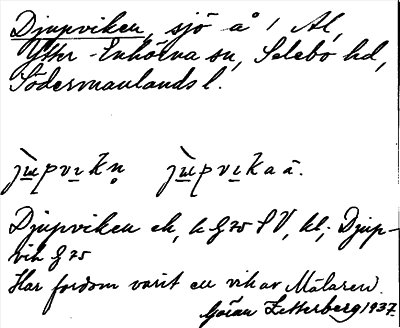 Djupviken, sjö å / Al,
Ytter-Enhörna sn, Selebo hd,
Södermanlands l.
jùpvıkn̥ jùpvıkaa.
Djupviken ek, k G 25 SV, kl; Djup-
vik G 25
Har fordom varit en vik av Mälaren.
Göran Zetterberg 1937.